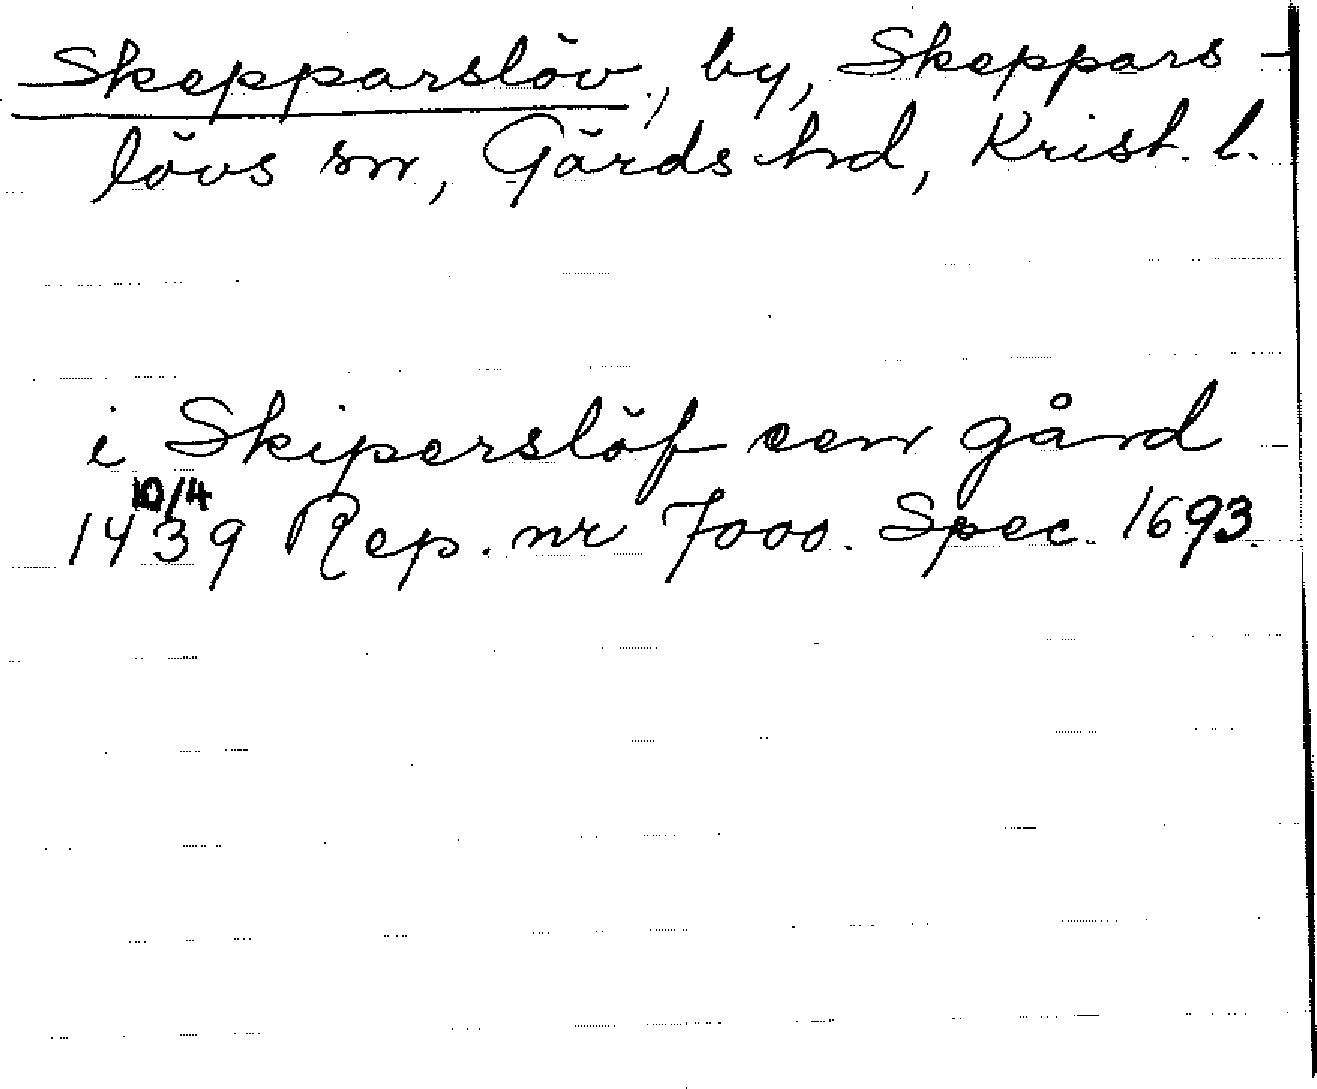 Skepparslöv, by, Skeppars-
lövs sn, Gärds hd, Krist. l.
i Skiperslöf een gård
10/4
1439 Rep. nr 7000. Spec. 1693.